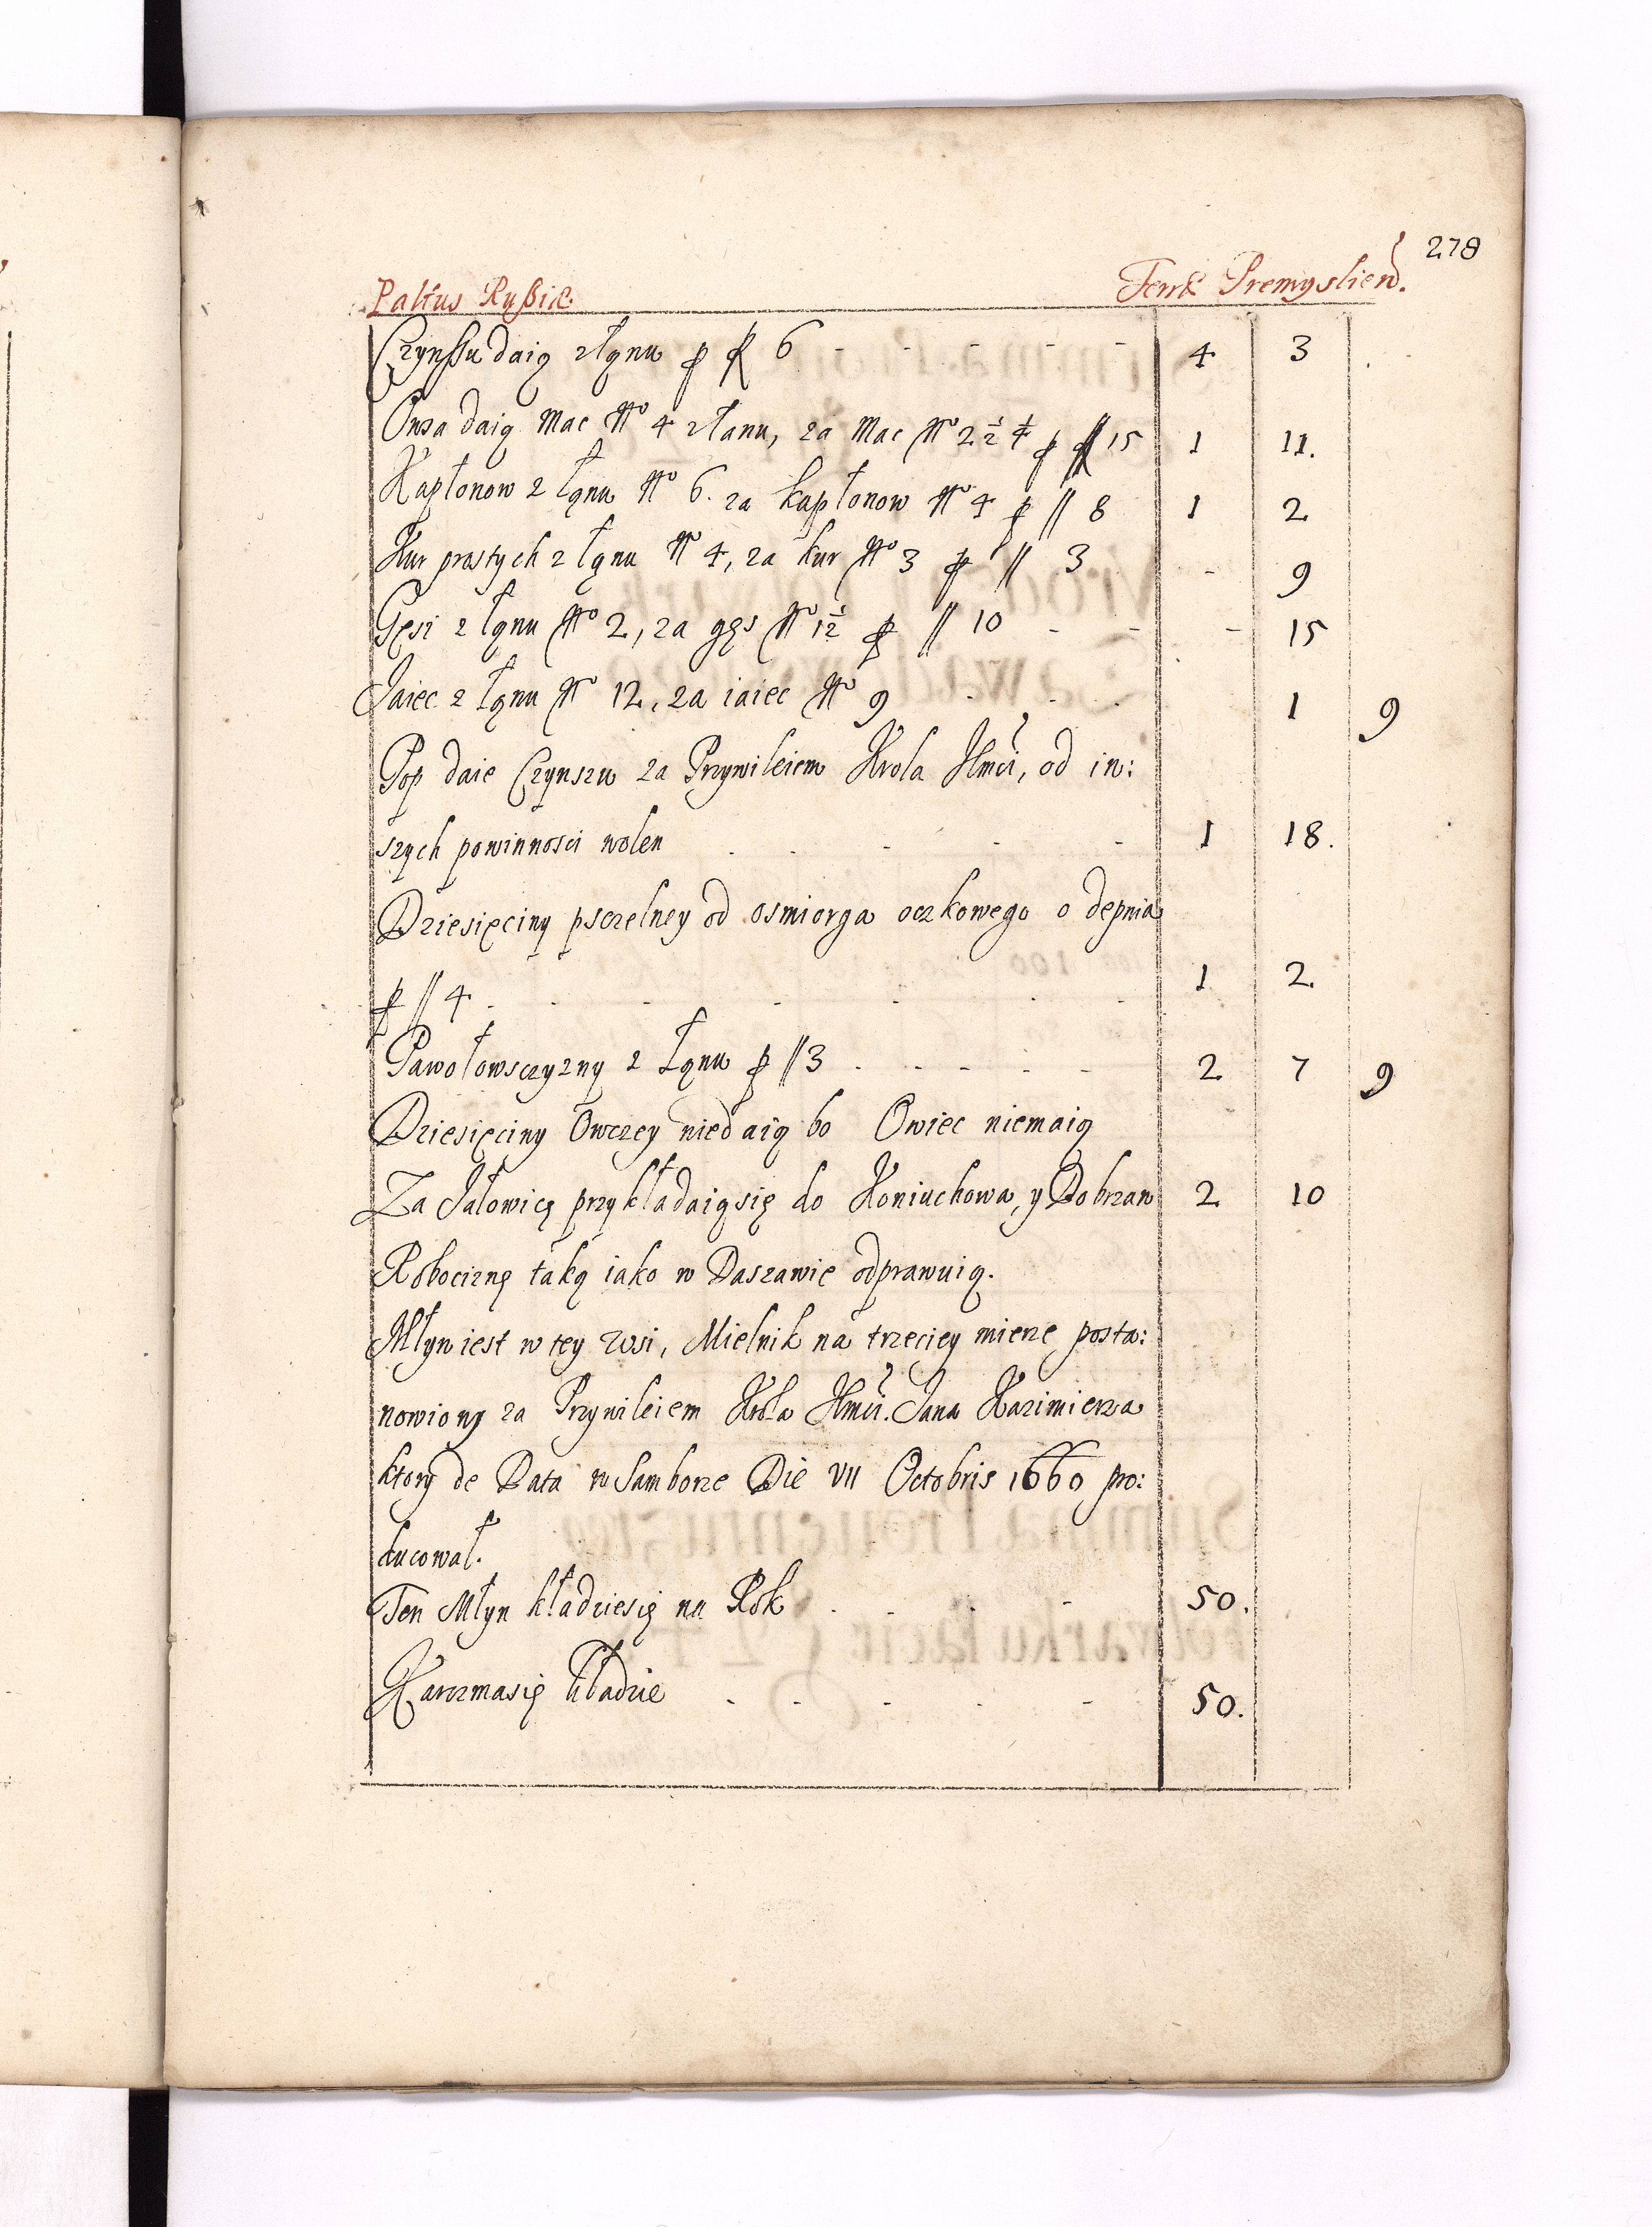 278
Paltus Rußiæ. Terræ Premyslien.
Czynßu daią złąnu p ƒ 6 - - - - - 4 3
Owsa daią Mac No 4 złanu, za Mac No 2 ½ ¼ p ƒ 15 1 11.
Kapłonow z łąnu No 6. za kapłonow No 4 p ƒ 8 1 2
Kur prostych z łąnu No 4, za kur No 3 p ƒ 3 - 9
Gęsi z łąnu No 2, za gęs No 1½ p ƒ 10 - - - 15
Jaiec z łąnu No 12, za iaiec No 9 - - - 1 9
Pop daie Czynszu za Przywileiem Krola Jmći, od in:
szych powinnosci wolen - - - - - 1 18.
Dziesięciny pszczelney od osmiorga oczkowego o depnia
p ƒ 4 - - - - - - 1 2.
Pawołowsczyzny z Łąnu p ƒ 3 - - - - - 2 7 9
Dziesięciny Owczey niedaią bo Owiec niemaią
Za Jałowicę przykładaiąsię do Koniuchowa, y Dobrzan 2 10
Robociznę taką iako w Daszawie odprawuią.
Młyn iest w tey wsi, Mielnik na trzeciey mierze posta:
nowiony za Przywileiem Krola Jmći. Jana Kazimierza
ktory de Data w Samborze Die VII Octobris 1660 pro:
ducował.
Ten Młyn kładziesię na Rok - - - - 50.
Karczmasię kładzie - - - - - 50.